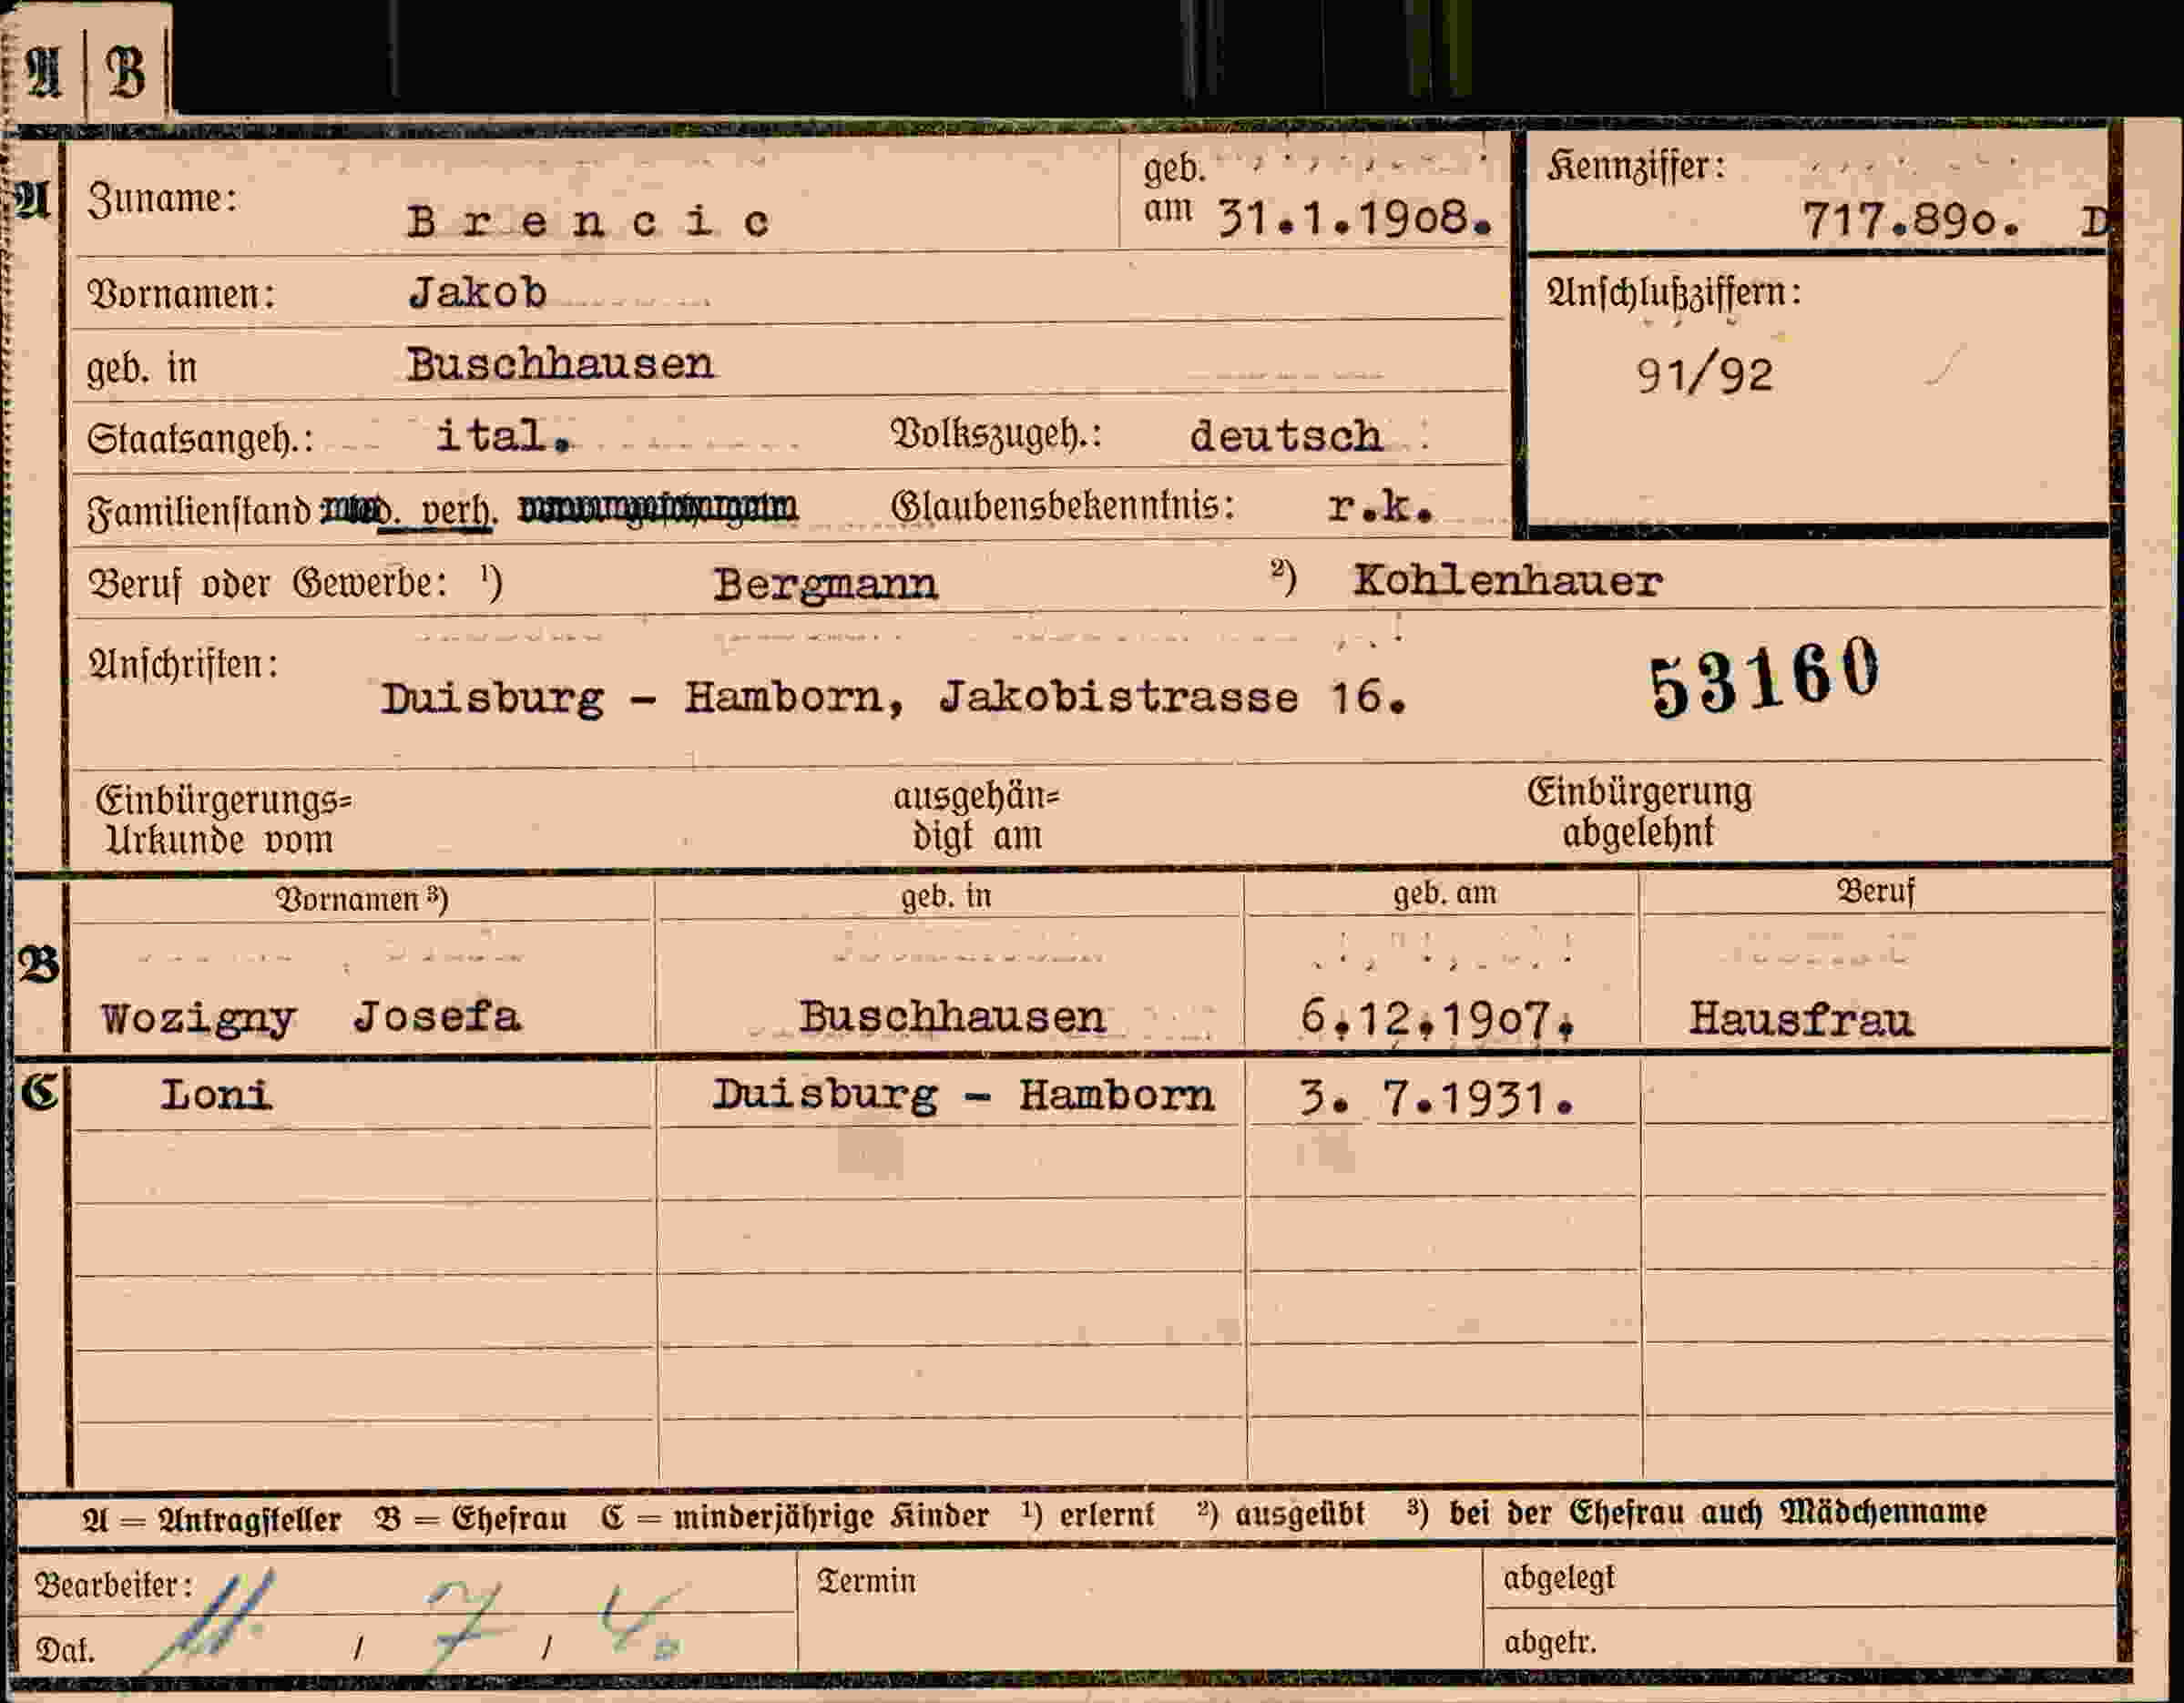 A | B
A Zuname: Brencic geb. am 31.1.1908. Kennziffer: 717.890. D
Vornamen: Jakob Anschlußziffern:
geb. in Buschhausen 91/92
Staatsangeh.: ital. Volkszugeh.: deutsch
Familienstand verh. Glaubensbekenntnis: r.k.
Beruf oder Gewerbe: ¹) Bergmann ²) Kohlenhauer
Anschriften: 53160
Duisburg - Hamborn, Jakobistrasse 16.
Einbürgerungs= ausgehän= Einbürgerung
Urkunde vom digt am abgelehnt
Vornamen ³) geb. in geb. am Beruf
B
Wozigny Josefa Buschhausen 6.12.1907. Hausfrau
C Loni Duisburg - Hamborn 3. 7.1931.
A = Antragsteller B = Ehefrau C = minderjährige Kinder ¹) erlernt ²) ausgeübt ³) bei der Ehefrau auch Mädchenname
Bearbeiter: Termin abgelegt
Dat. 11. / 7 / 40 abgetr.